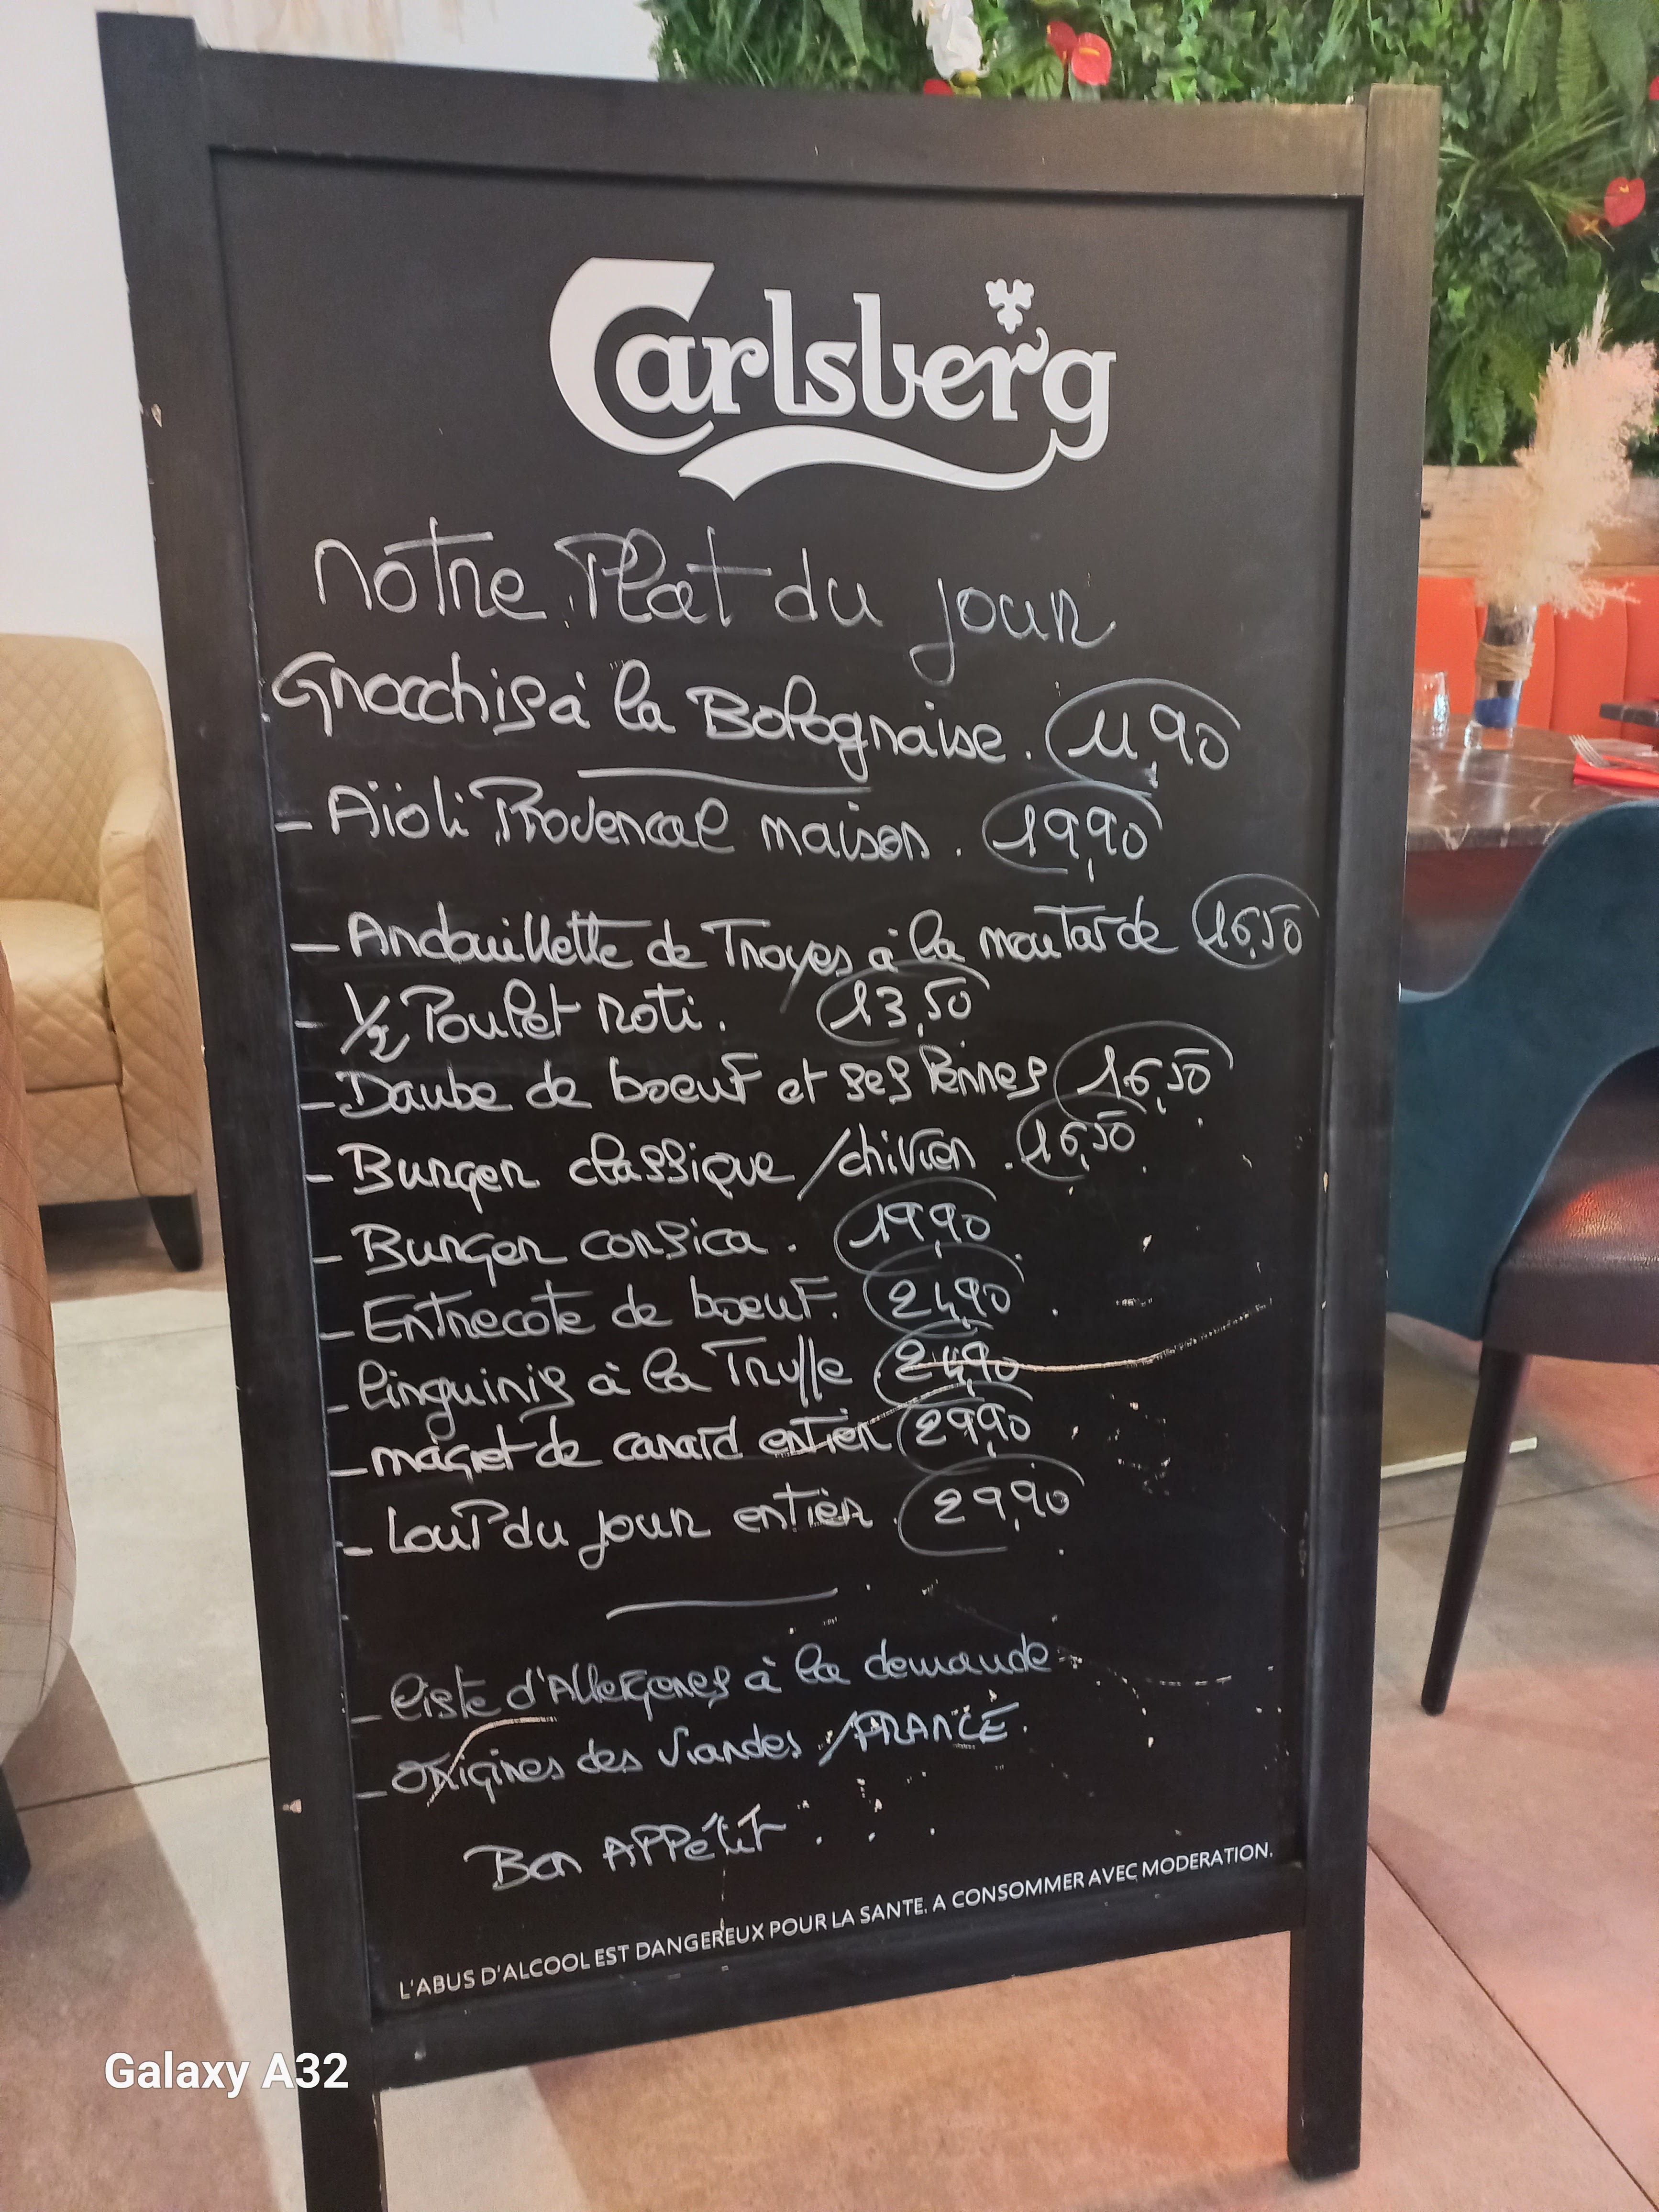 Carlsberg
notre Plat du jour
Gnocchis à la Bolognaise. 11,90
- Aïoli Provencal maison. 19,90
- Andouillette de Troyes à la moutarde 16,50
- 1/2 Poulet roti. 13,50
- Daube de boeuf et ses Pennes 16,50
- Burger classique / chivren. 16,50
- Burger corsica. 19,90
- Entrecote de boeuf. 24,90
- linguinis à la Truffe. 24,90
- magret de canard entier 29,90
- Loup du jour entier. 29,90
- liste d'Allergenes à la demande.
- origines des Viandes / FRANCE.
Bon APPétit.
L'ABUS D'ALCOOL EST DANGEREUX POUR LA SANTE. A CONSOMMER AVEC MODERATION.
Galaxy A32